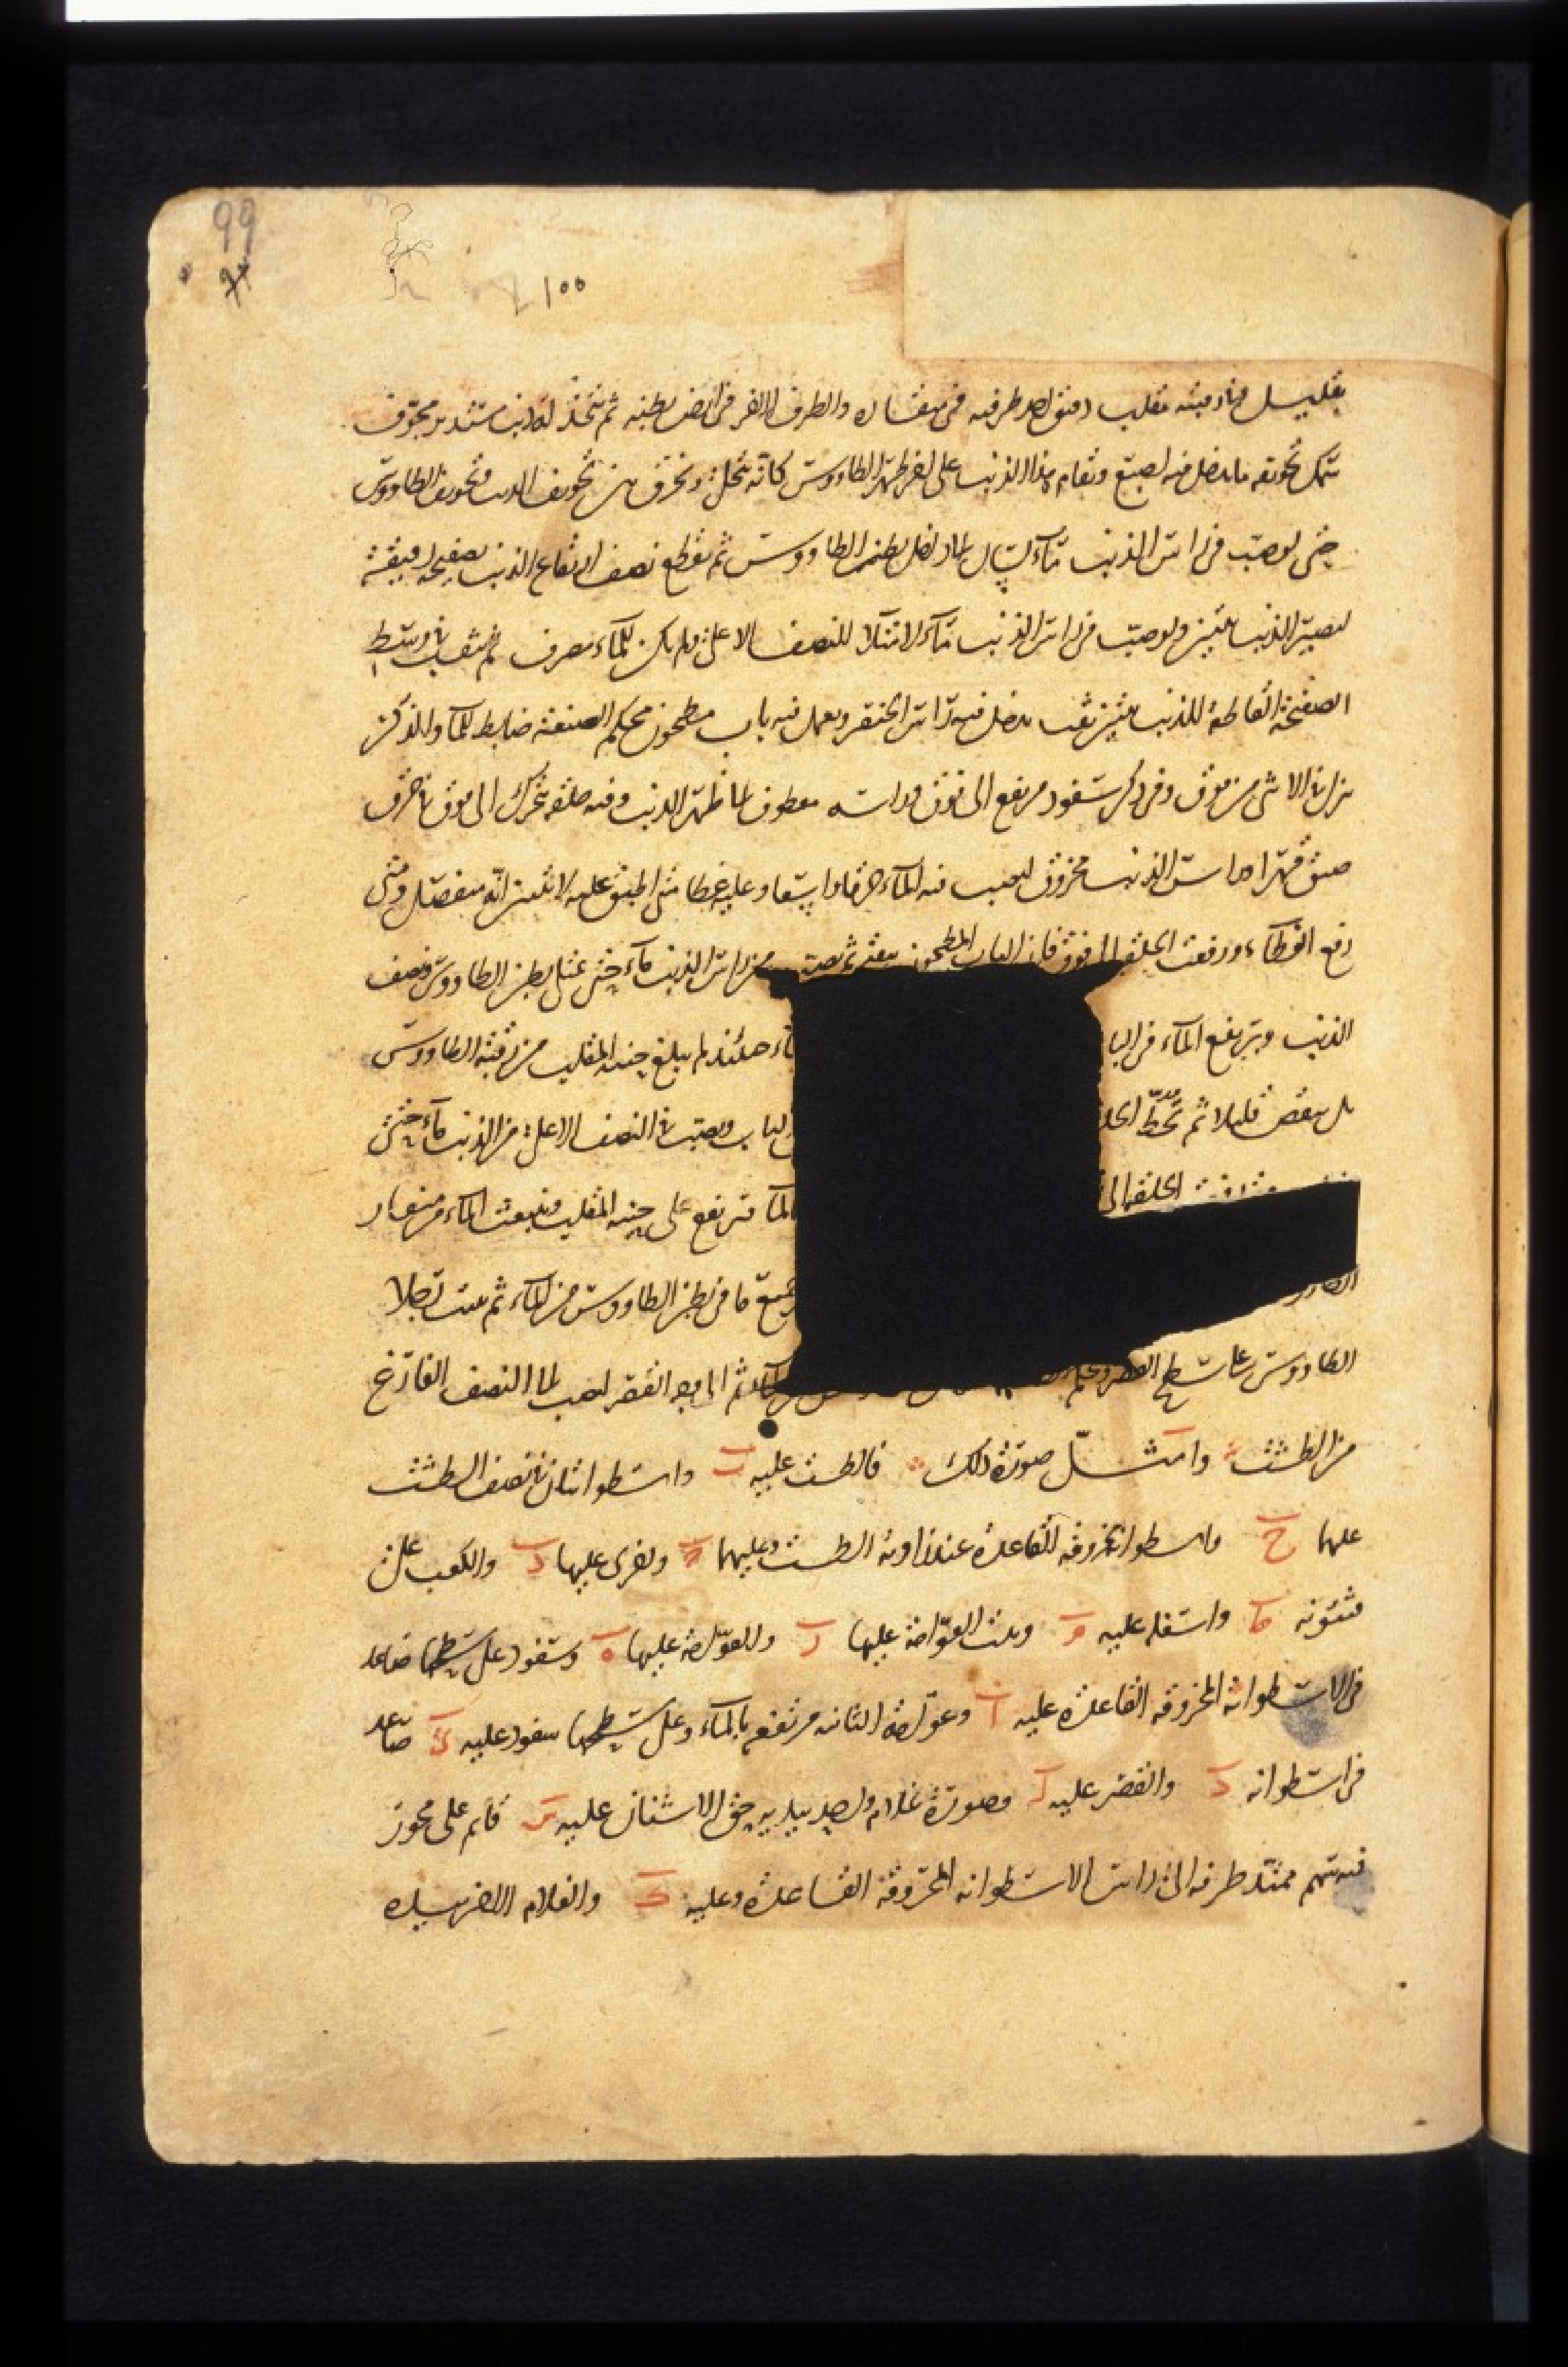 99
١٠٠
بقليل وفي رقبته مقلب دقيق احد طرفيه في منقاره والطرف الاخر في ارض بطنه ثم يتخذ له ذنب مستدير مجوف
سمك تجويفه ما يدخل فيه اصبع ويقام هذا الذنب على اخر ظهر الطاووس كانه يحل ويخرق بين تجويف الذنب وتجويف الطاووس
حتى لو صب في راس الذنب ماء لسال الى داخل بطن الطاووس ثم يقطع نصف ارتفاع الذنب بصفيحة رقيقة
ليصير الذنب بيتين ولو صب في راس الذنب ماء لامتلا النصف الاعلى ولم يكن للماء مصرف ثم يثقب في وسط
الصفيحة القاطعة للذنب بيتين ثقب يدخل فيه راس الخنصر ويعمل فيه باب مطحون محكم الصنعة ضابط للماء والذكر
نزل في الانثى من فوق وفي ذكر سفود مرتفع الى فوق وراسه معطوف الى ظهر الذنب وفيه حلقة تتحرك الى فوق في خرق
ضيق وراس الذنب مخروق ليصب فيه الماء وعليه غطا متى اطبق عليه لا يتبين انه منفصل ومتى
رفع الغطاء ورفعت الحلقة الى فوق فان الباب المطحون ينفتح ثم يصب من راس الذنب ماء حتى يمتلئ بطن الطاووس ونصف
الذنب ويرتفع الماء في البا حينئذ لم يبلغ حنية المقلب من رقبة الطاووس
بل ينقص قليلا ثم تحط الحلـ لباب ويصب في النصف الاعلى من الذنب ماء حتى
الحلقة الى الماء يرتفع على حنية المقلب وينبعث الماء من منقار
جميع ما في بطن الطاووس من الماء ثم يثبت رجلا
الطاووس على سطح القصر ثم الى وجه القصر ليصب الى النصف الفارغ
من الطست وامثل صورة ذلك فالطست عليه ب واسطوانتان في نصف الطست
عليها ح واسطوانة مخروقة القاعدة عند زاوية الطست وعليها واخرى عليها د والكعب على
واسفله عليه وبيت العوامة عليها ر والعوامة عليها ه وسفود على سطحها صاعد
في الاسطوانة المخروقة القاعدة عليه ا وعوامة الثانية مرتفعة بالماء وعلى سطحها سفود عليه ى صاعد
في اسطوانة د والقصر عليه ل وصورة غلام واحد بيديه حق الاشنان عليه س قايم على محور
فيه سهم ممتد طرفه الى راس الاسطوانة المخروقة القاعدة وعليه ك والغلام الاخر بيده